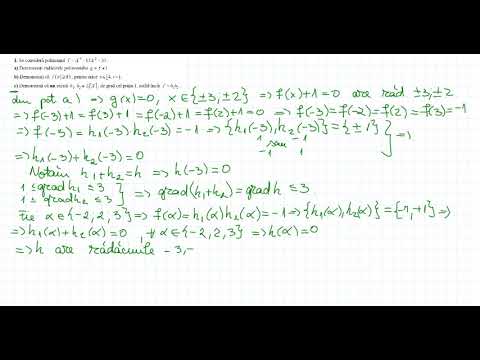 1. Se consideră polinomul f = X⁴ - 13X² + 35.
a) Determinați rădăcinile polinomului g = f + 1
b) Demonstrați că f(x) ≥ 0, pentru orice x ∈ [4, +∞).
c) Demonstrați că nu există h₁, h₂ ∈ ℤ[X], de grad cel puțin 1, astfel încât f = h₁h₂.
din pct a) ⇒ g(x)=0, x∈{±3,±2} ⇒ f(x)+1=0 are răd ±3,±2
⇒ f(-3)+1 = f(3)+1 = f(-2)+1 = f(2)+1=0 ⇒ f(-3)=f(-2)=f(2)=f(3)=-1
⇒ f(-3) = h₁(-3)h₂(-3) = -1 ⇒ {h₁(-3),h₂(-3)}={±1}
1 sau -1
-1 1
⇒
⇒ h₁(-3)+h₂(-3)=0
Notăm h₁+h₂=h ⇒ h(-3)=0
1 ≤ grad h₁ ≤ 3
1 ≤ grad h₂ ≤ 3
⇒ grad(h₁+h₂)=grad h ≤ 3.
Fie α∈{-2,2,3} ⇒ f(α)=h₁(α)h₂(α)=-1 ⇒ {h₁(α),h₂(α)}={-1,+1} ⇒
⇒ h₁(α)+h₂(α)=0, ∀ α∈{-2,2,3} ⇒ h(α)=0
⇒ h are rădăcinile -3,-